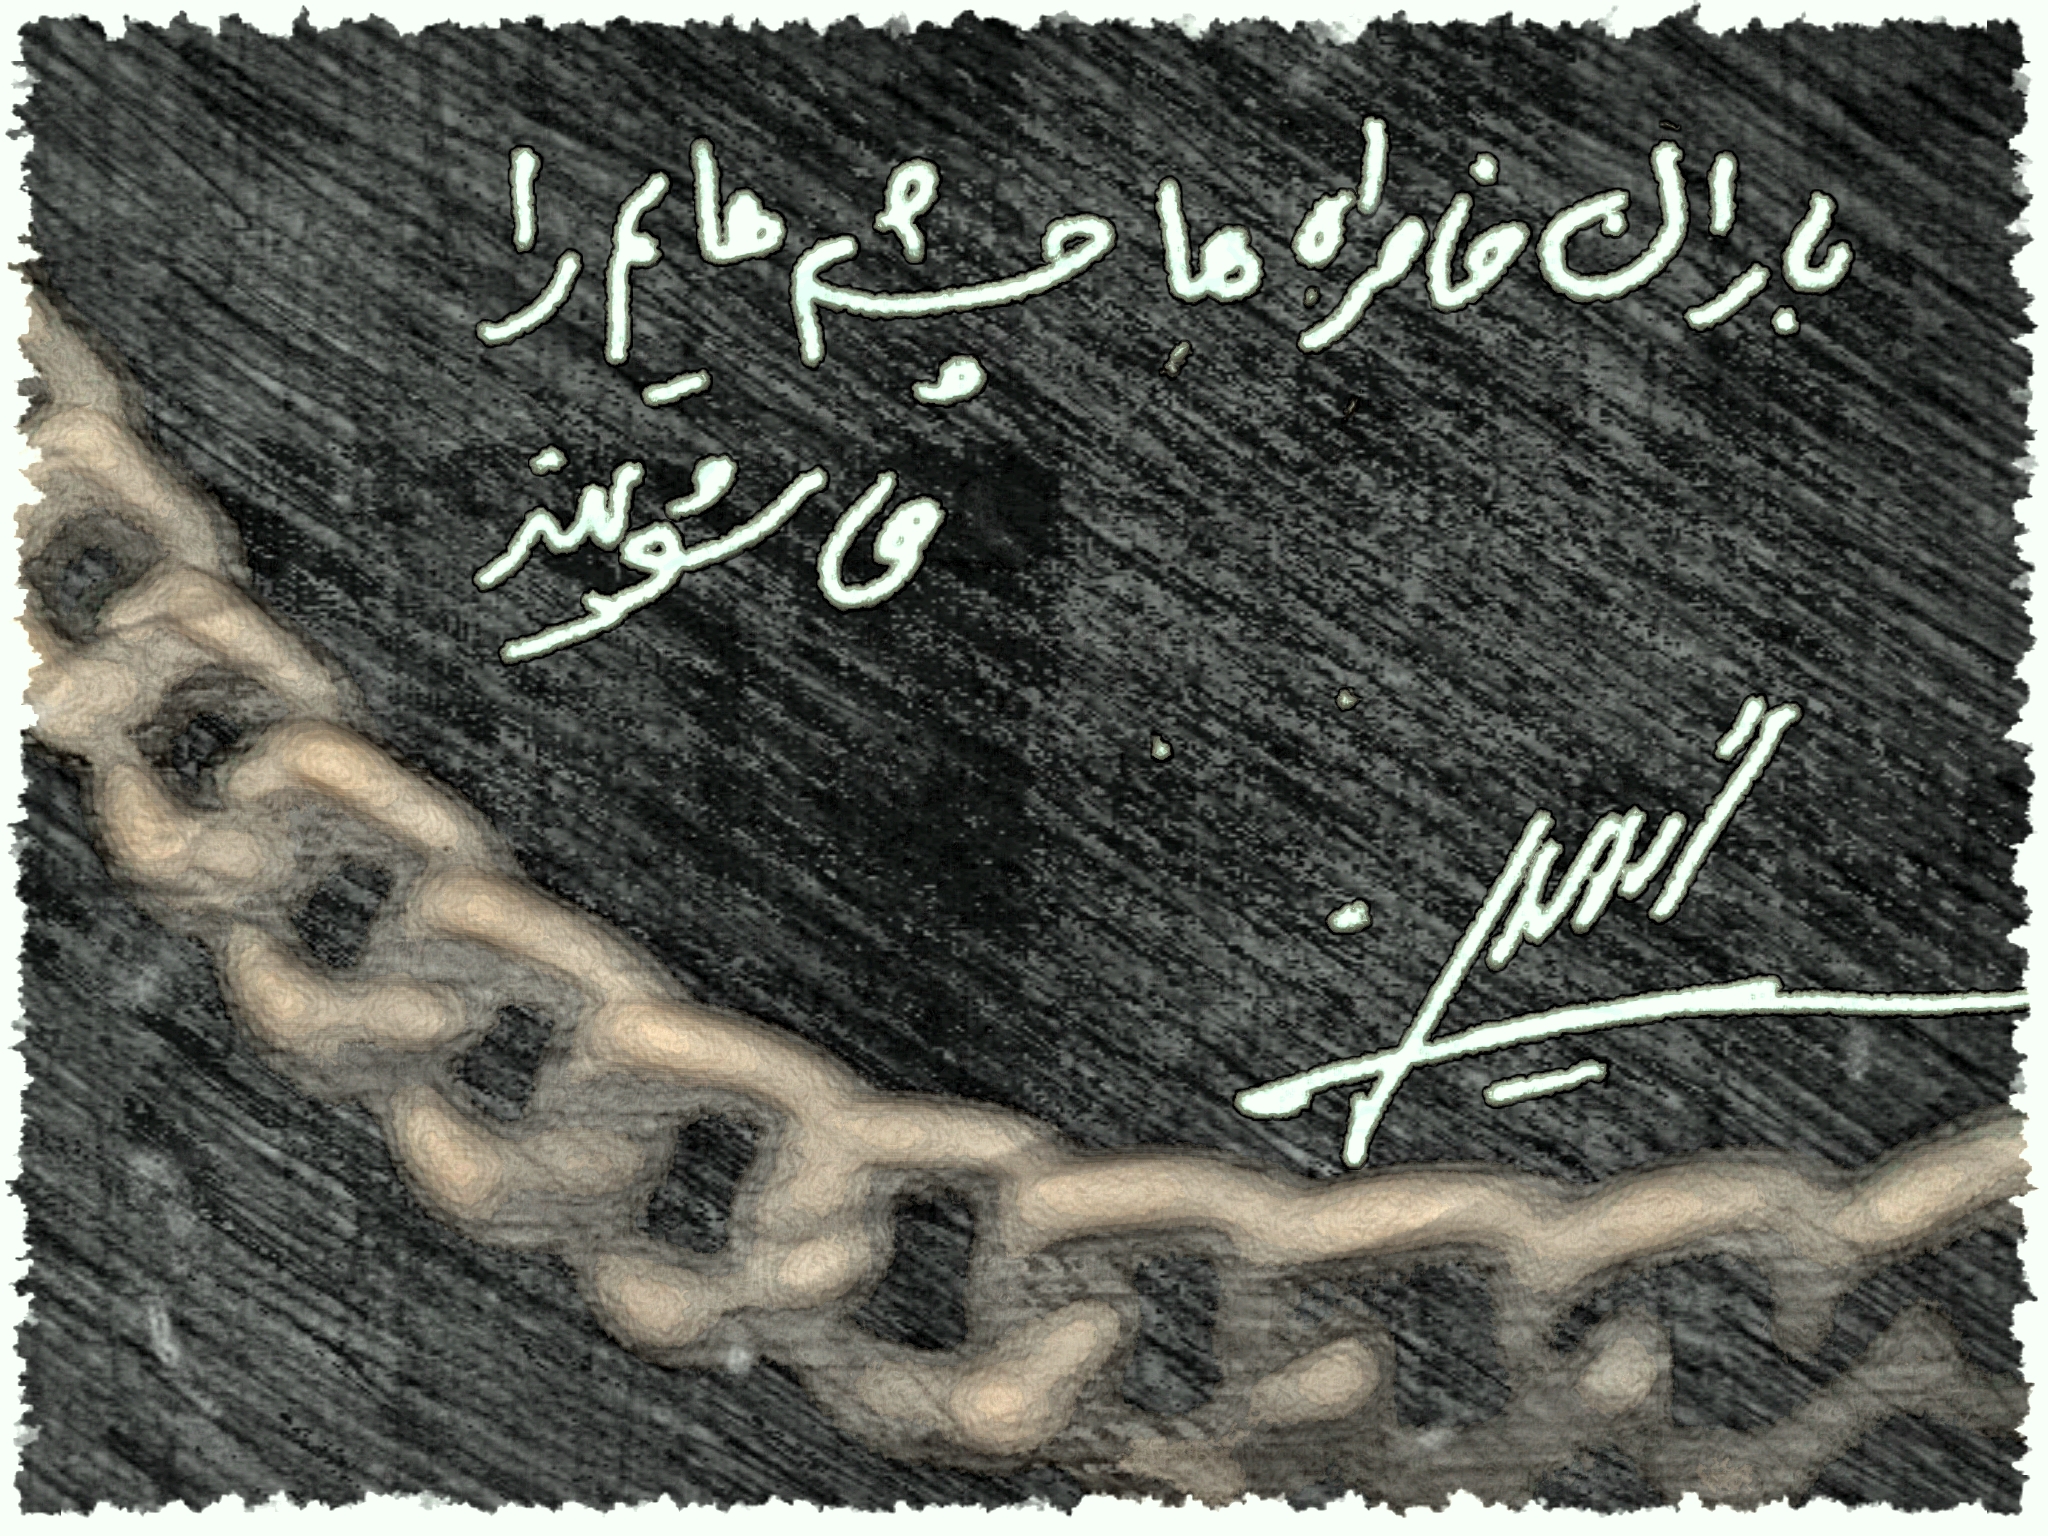 باران خاطره ها چشم هایم را
می شویند